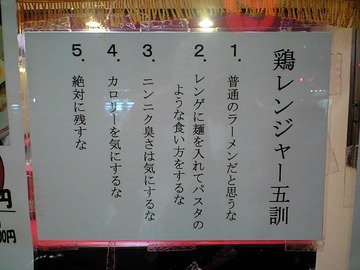 鶏レンジャー五訓
1. 普通のラーメンだと思うな
2. レンゲに麺を入れてパスタの
ような食い方をするな
3. ニンニク臭さは気にするな
4. カロリーを気にするな
5. 絶対に残すな
円
00円